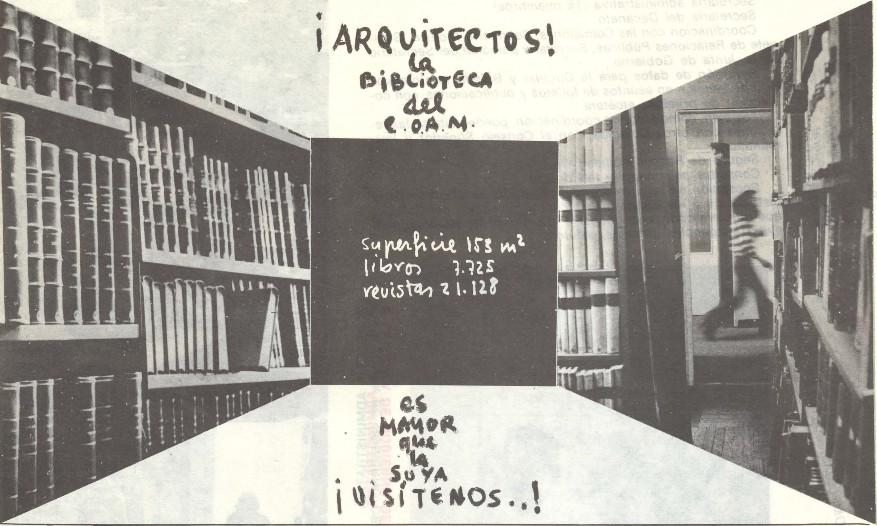 ¡ARQUITECTOS!
la
BIBLIOTECA
del
C.O.A.M.
superficie 153 m²
libros 7.725
revistas 21.128
es
MAYOR
que
la
SUYA
¡VISÍTENOS..!